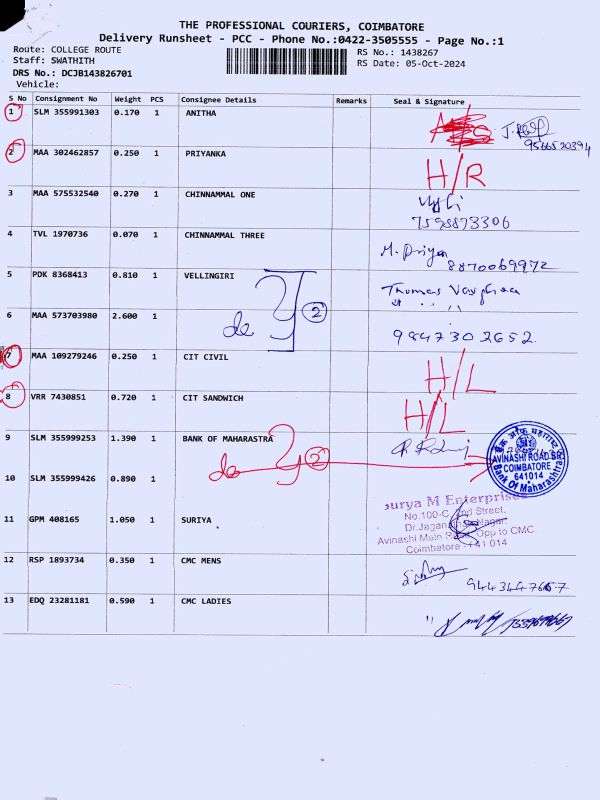 THE PROFESSIONAL COURIERS, COIMBATORE
Delivery Runsheet - PCC - Phone No.:0422-3505555 - Page No.:1
Route: COLLEGE ROUTE
Staff: SWATHITH
DRS No.: DCJB143826701
Vehicle:
RS No.: 1438267
RS Date: 05-Oct-2024
S No Consignment No Weight PCS Consignee Details Remarks Seal & Signature
1 SLM 355991303 0.170 1 ANITHA
9566520394
2 MAA 302462857 0.250 1 PRIYANKA H/R
3 MAA 575532540 0.270 1 CHINNAMMAL ONE
7598873306
4 TVL 1970736 0.070 1 CHINNAMMAL THREE M. Priya
8870069972
5 PDK 8368413 0.810 1 VELLINGIRI Thomas
do 2
6 MAA 573703980 2.600 1 9847302652
7 MAA 109279246 0.250 1 CIT CIVIL H/L
8 VRR 7430851 0.720 1 CIT SANDWICH H/L
9 SLM 355999253 1.390 1 BANK OF MAHARASTRA
do 2
AVINASHI ROAD BR.
COIMBATORE
641014
Bank Of Maharashtra
10 SLM 355999426 0.890 1
11 GPM 408165 1.050 1 SURIYA
Surya M Enterprises
No.100-C, 2nd Street,
Avinashi Main Road, Opp to CMC
Coimbatore - 641 014
12 RSP 1893734 0.350 1 CMC MENS
9443447667
13 EDQ 23281181 0.590 1 CMC LADIES